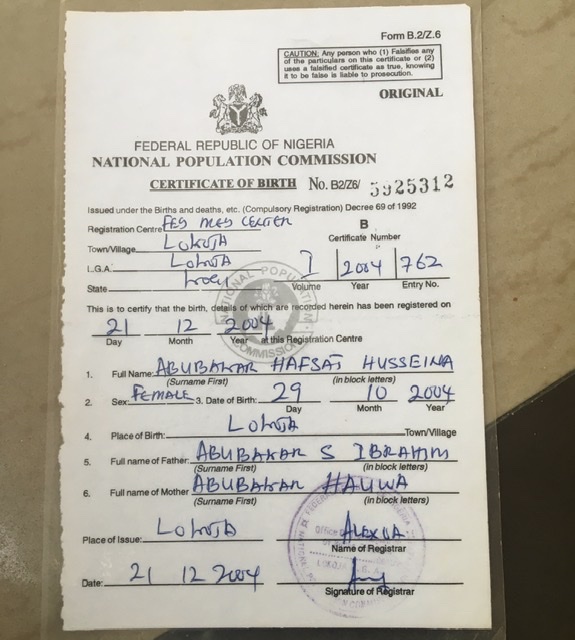 Form B.2/Z.6
CAUTION: Any person who (1) Falsifies any
of the particulars on this certificate or (2)
uses a falsified certificate as true, knowing
it to be false is liable to prosecution.
ORIGINAL
FEDERAL REPUBLIC OF NIGERIA
NATIONAL POPULATION COMMISSION
CERTIFICATE OF BIRTH No. B2/Z6/ 5925312
Issued under the Births and deaths, etc. (Compulsory Registration) Decree 69 of 1992
Registration Centre CENTER B
Town/Village LOKOJA Certificate Number
L.G.A. LOKOJA I 2004 762
State Kogi Volume Year Entry No.
This is to certify that the birth, details of which are recorded herein has been registered on
21 12 2004
Day Month Year at this Registration Centre
1. Full Name: ABUBAKAR HAFSAT HUSSEINA
(Surname First) (in block letters)
2. Sex: FEMALE 3. Date of Birth: 29 10 2004
Day Month Year
4. Place of Birth: LOKOJA Town/Village
5. Full name of Father: ABUBAKAR S IBRAHIM
(Surname First) (in block letters)
6. Full name of Mother ABUBAKAR HAUWA
(Surname First) (in block letters)
Place of Issue: LOKOJA
Name of Registrar
Date: 21 12 2004
Signature of Registrar